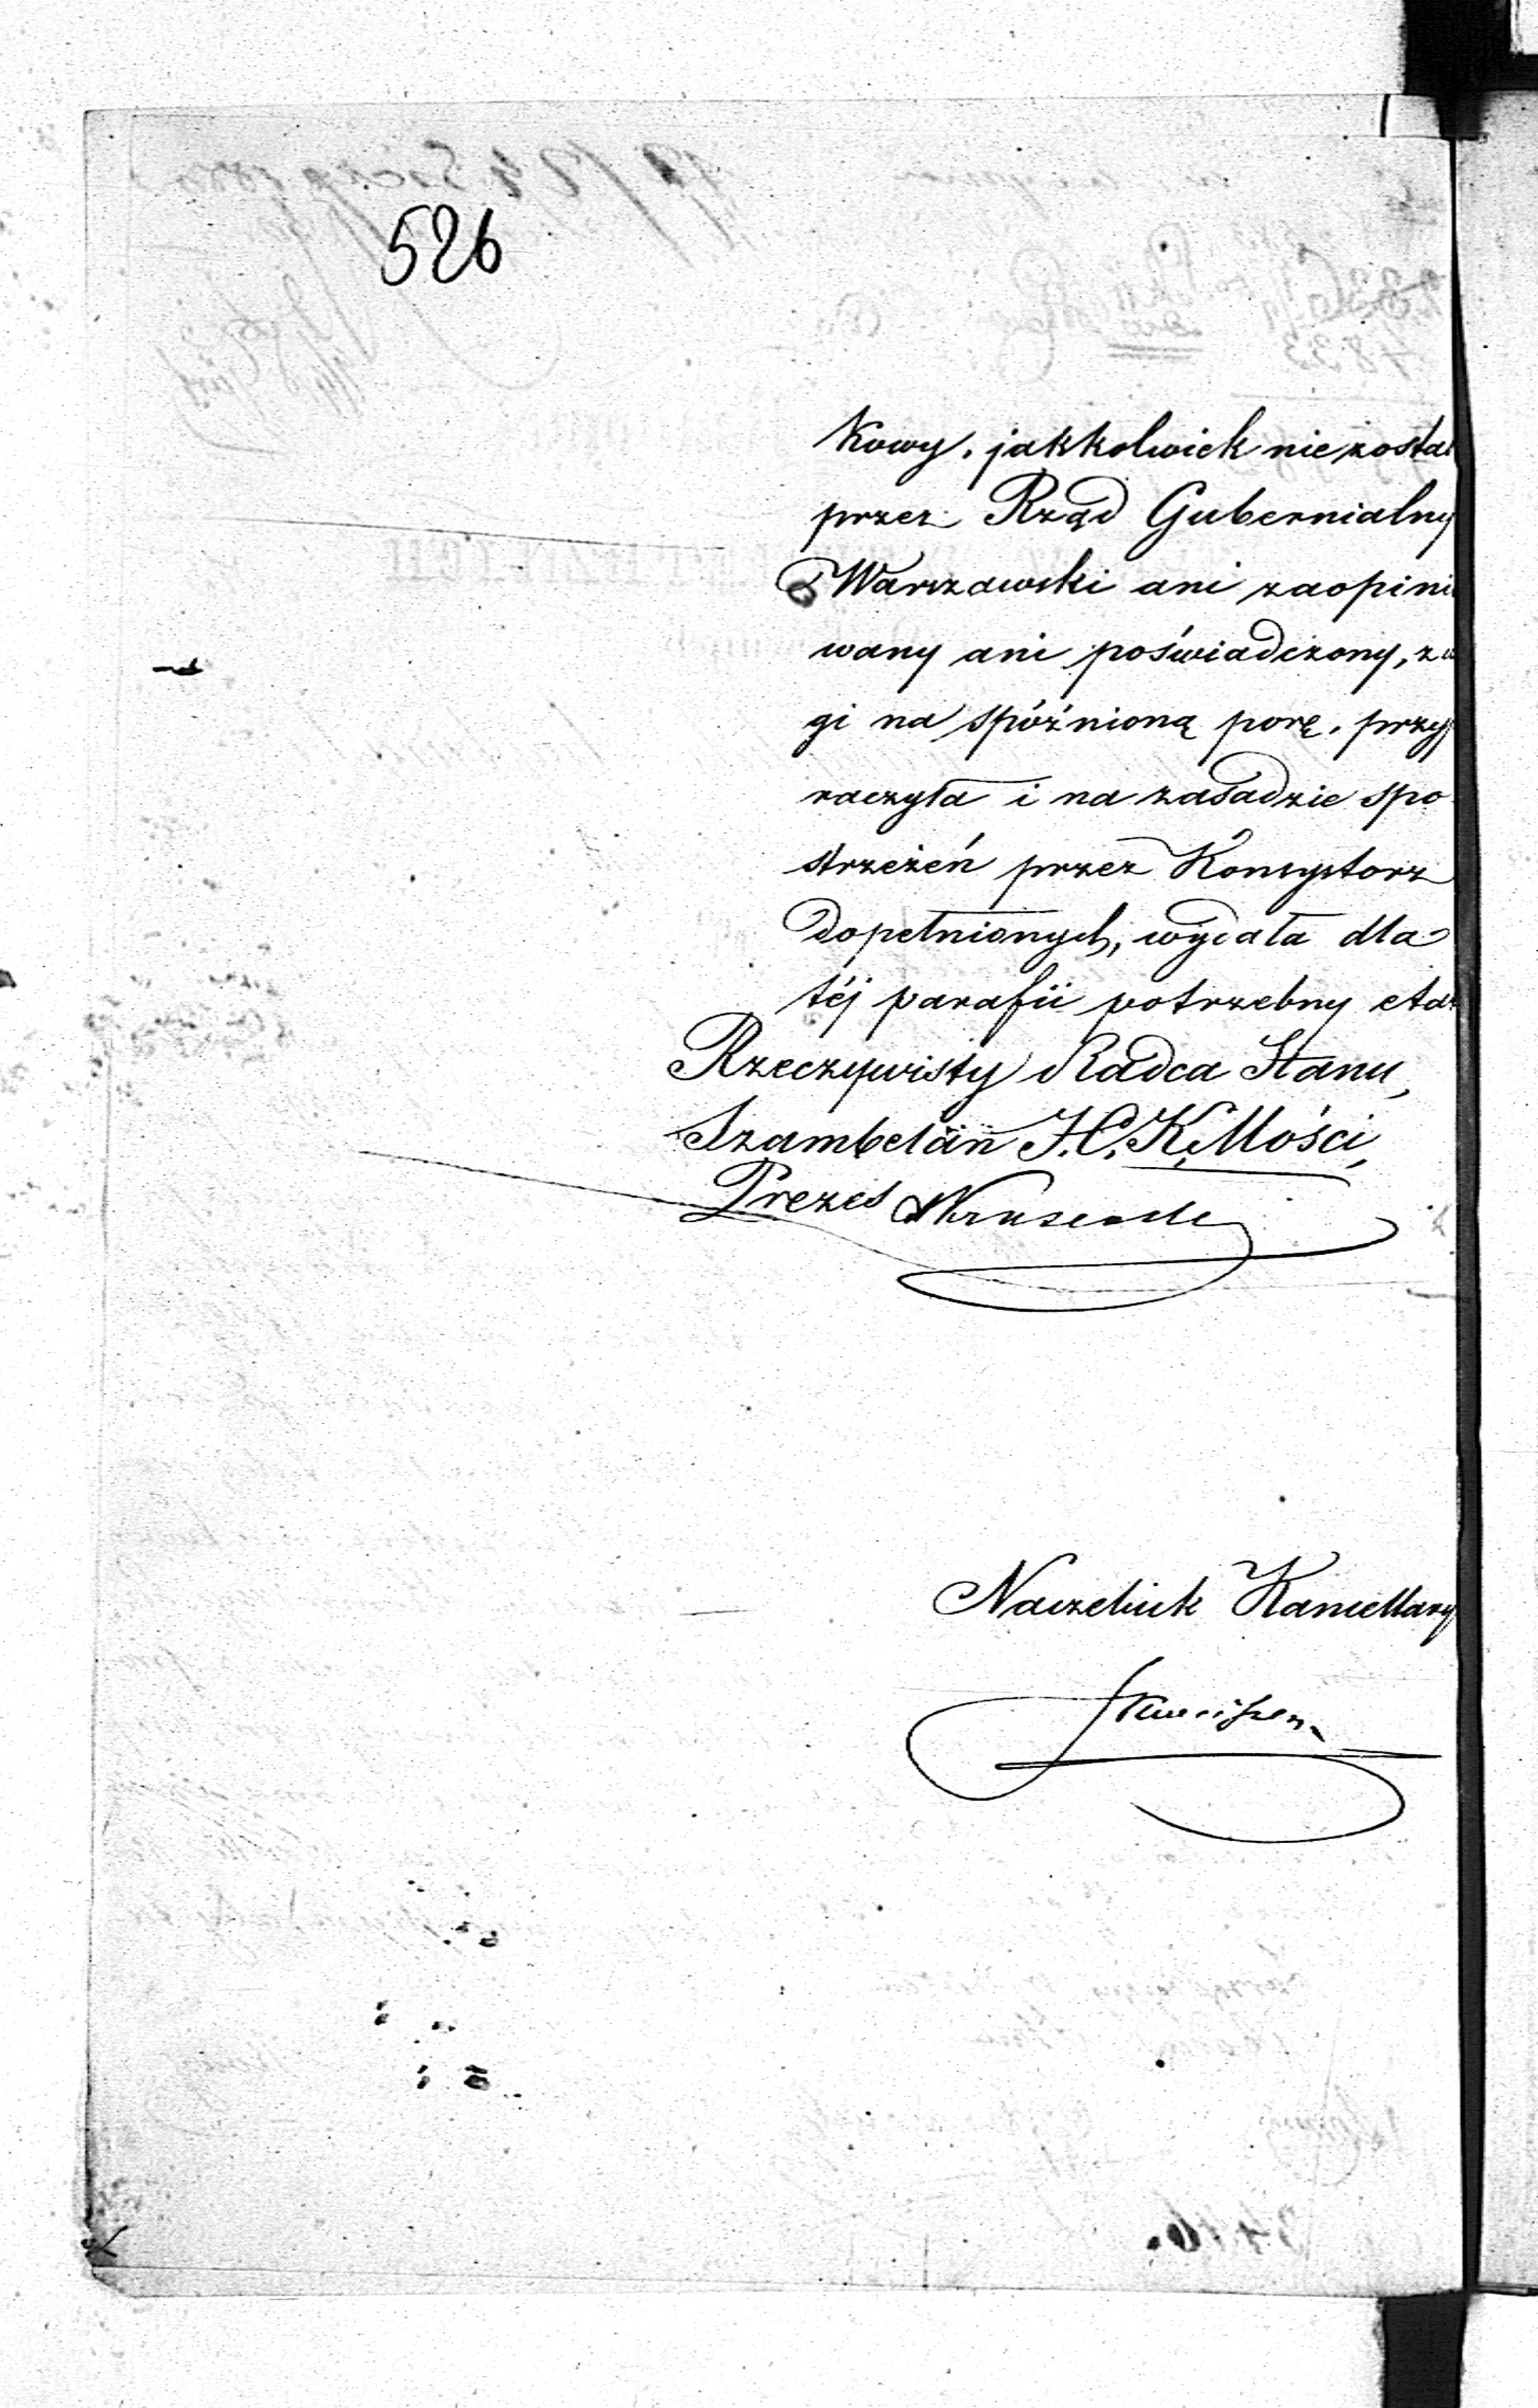 526
kowy, jakkolwiek nie został
przez Rząd Gubernialny
Warszawski ani zaopinio
wany ani poświadczony, zu
gi na spóźnioną porę, przyj
raczyła i na zasadzie spo
strzeżeń przez Konsystorz
dopełnionych, wydała dla
téj parafii potrzebny etat
Rzeczywisty Radca Stanu,
Szambelan J.C.K. Mości,
Prezes Krusenstern
Naczelnik Kancellary